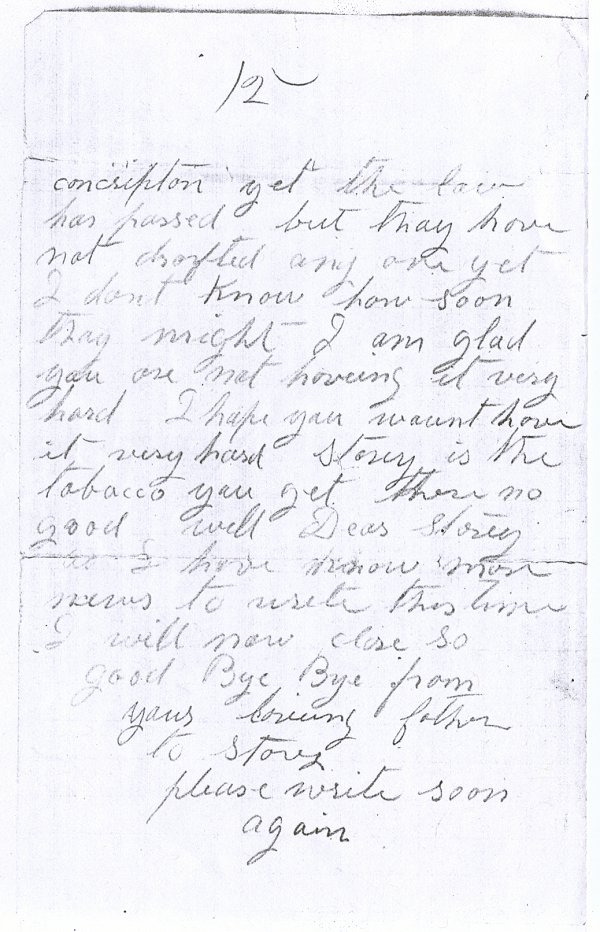 12
concsipton yet the law
has passed but thay have
not drafted any one yet
I dont know how soon
thay might I am glad
you are not haveing it very
hard I hope you waunt have
it very hard Storey is the
tobacco you get there no
good well Dear Storey
as I have know more
news to write this time
I will now close so
good Bye Bye from
your loveing father
to Storey
please write soon
again